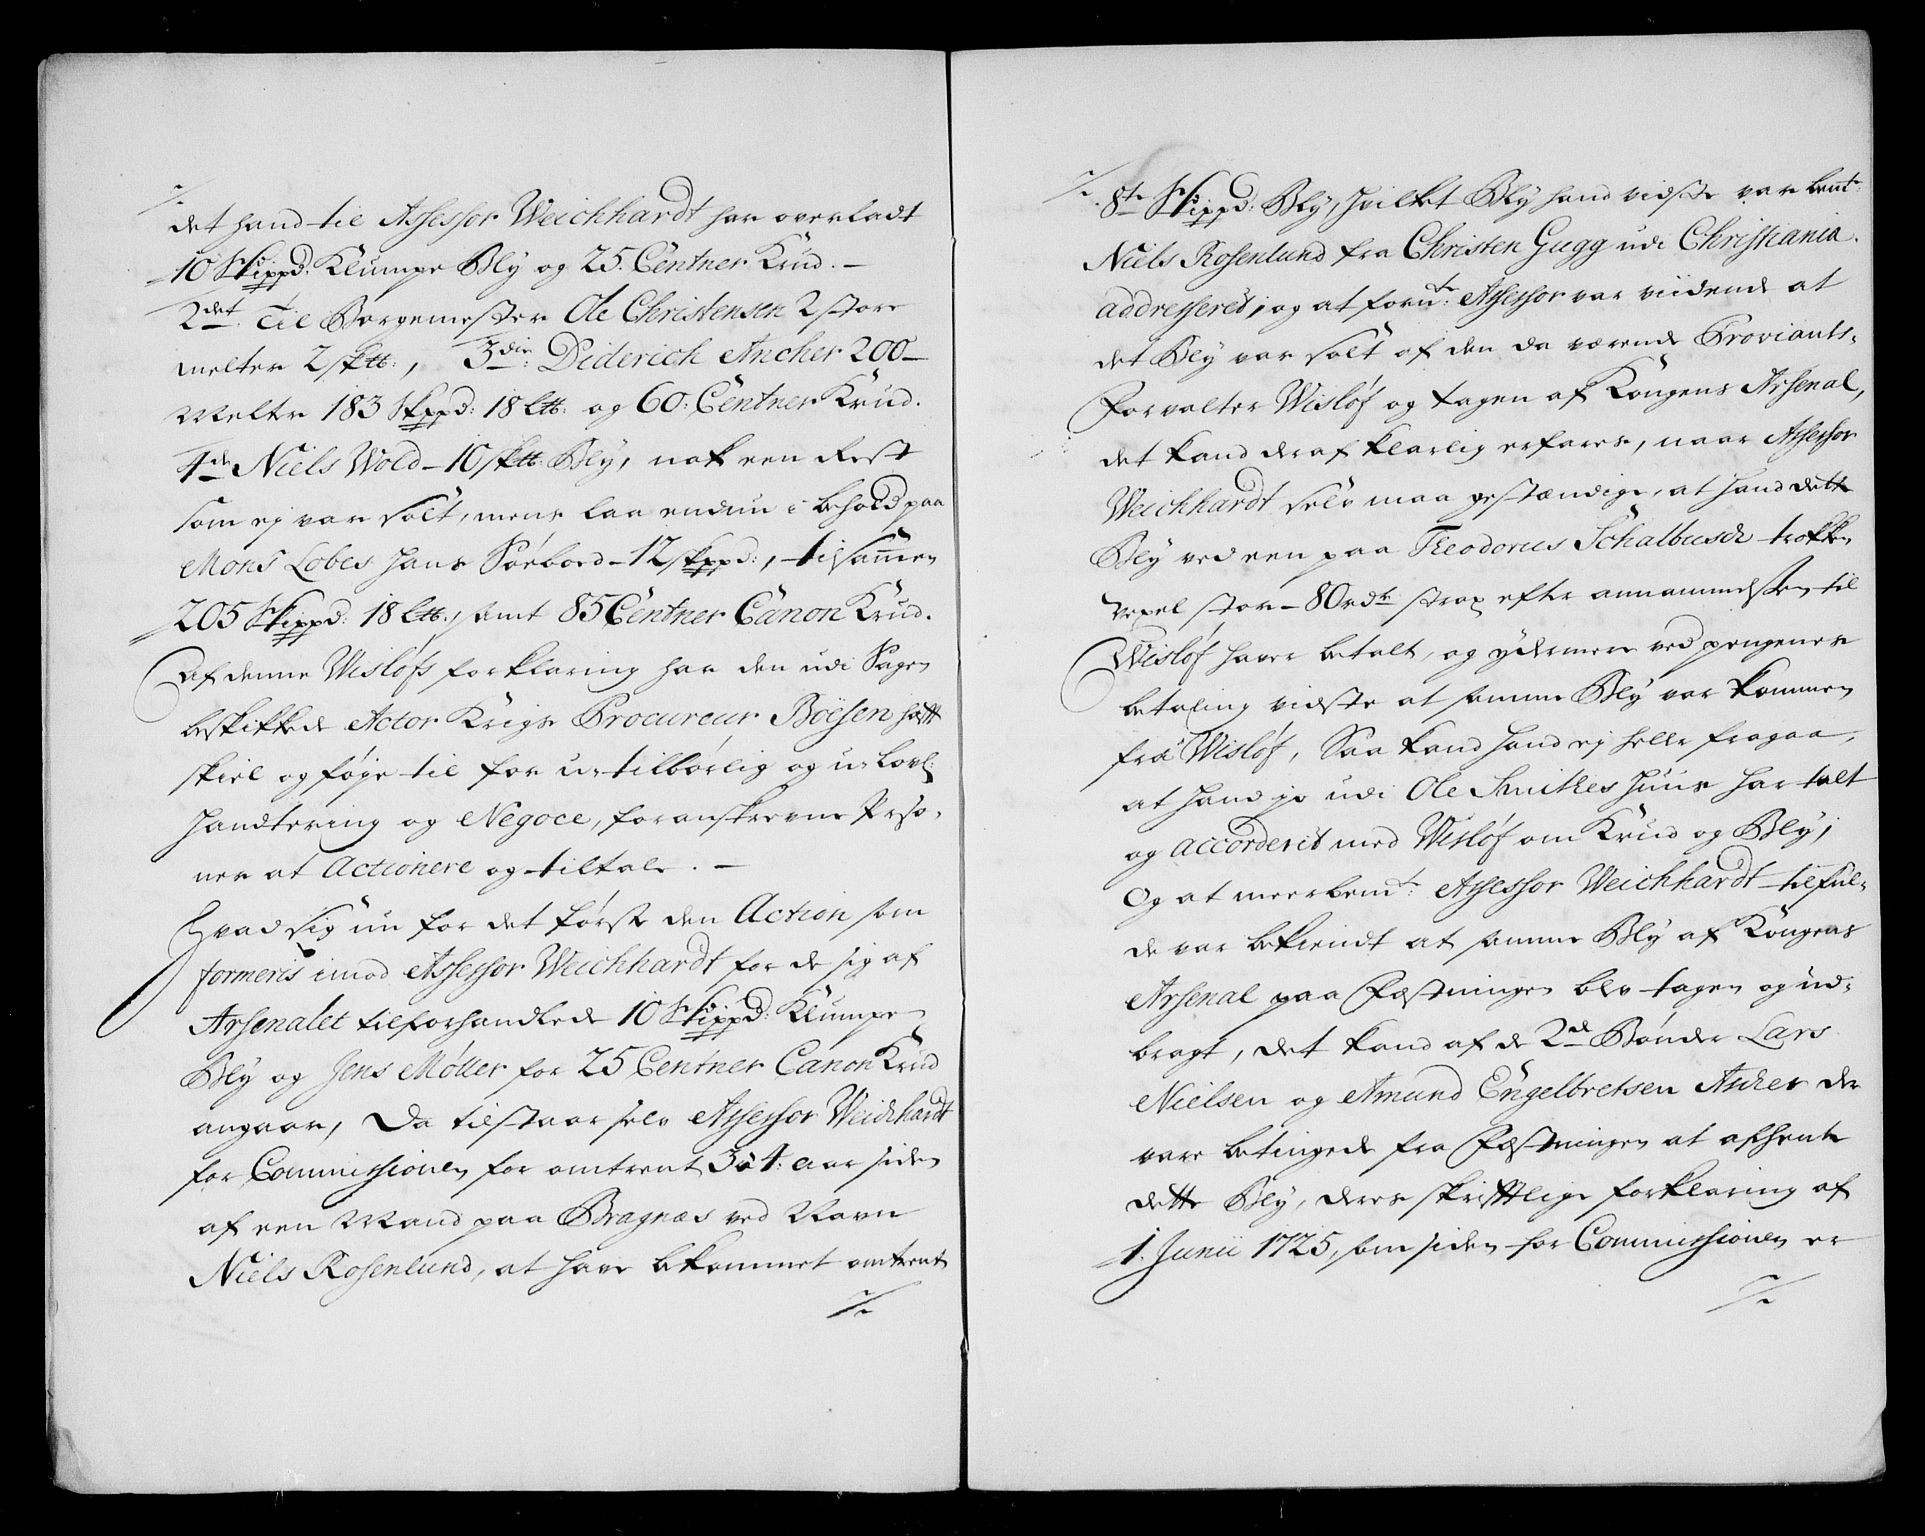 det hand til Assessor Weichhardt har overladt
10 Skippd: Klumpe Bly og 25. Centner Krud. –
2det. Til Borgemester Ole Christensen 2 store
melter 2 sk℔:, 3die: Diderich Ancher 200–
Melter 183 Skppd: 18 L℔: og 60: Centner Krud.
4de Niels Wold – 10 sk℔: Bly, nok een Rest
som ej var solt, mens laa endnu i behold paa
Mons Lobes hans Søebord – 12 skppd:, tilsamen
205 Skippd: 18 L℔:, samt 85 Centner Canon Krud.
Af denne Wisløfs forklaring har den udi Sagen
beskikkede Actor Krigs Procureur Boësen haft
skiel og føje til for u-tilbørlig og u-lovl:
Handtering og Negoce, foranskrevne Perso-
ner at Actionere og tiltale. –
Hvad sig nu for det første den Action som
formeris imod Assessor Weichhardt for de sig af
Arsenalet tilforhandlede 10 Skippd: Klumpe
Bly og Jens Møller for 25 Centner Canon Krud
angaar, Da tilstaar selv Assessor Weichhardt
for Commissionen for omtrent 3 à 4: aar siden
af een Mand paa Bragnæs ved Navn
Niels Rosenlund, at have bekommet omtrent
8te Skippd: Bly, hvilket Bly hand vidste var bemt:
Niels Rosenlund fra Christen Gugg udi Christiania
addresseret, og at fornte: Assessor var viidende at
det Bly var solt af den da værende Proviants-
Forvalter Wisløf og tagen af Kongens Arsenal,
det kand deraf klarlig erfares, naar Assessor
Weichhardt selv maa gestændige, at hand dette
Bly ved een paa Theodorus Schalbusch trokken
Vexel stor – 80 rdr: strax efter annammelsen til
Wisløf haver betalt, og ydermere ved pengenes
betaling vidste at samme Bly var kommen
fra Wisløf, Saa kand hand ej heller fragaa,
at hand jo udi Ole Smithes Huus har talt
og accorderit med Wisløf om Krud og Bly;
Og at meerbemt: Assessor Weichhardt tilful-
de var bekiendt at samme Bly af Kongens
Arsenal paa Fæstningen blev tagen og ud-
bragt, det kand af de 2de Bønder Lars
Nielsen og Amund Engelbretsen Ascher der
vare betingede fra Fæstningen at afhente
dette Bly, deres skriftlige forklaring af
1. Junii 1725, som siden for Commissionen er